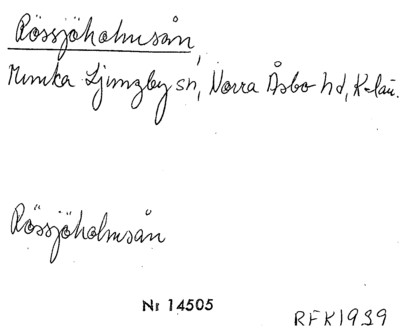 Rössjöholmsån,
Munka Ljungby sn, Norra Åsbo hd, K-län.
Rössjöholmsån
Nr 14505
RFK1939